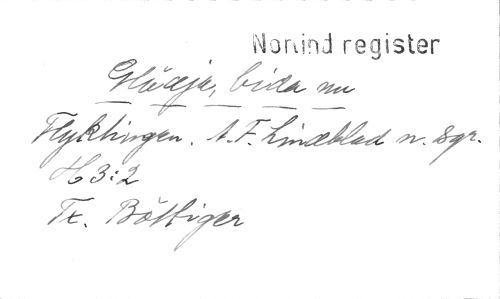 Nomind register
Glädja, bida nu
Flyktingen. A. F. Lindblad n. 8gr.
H 3:2
Tx. Böttiger